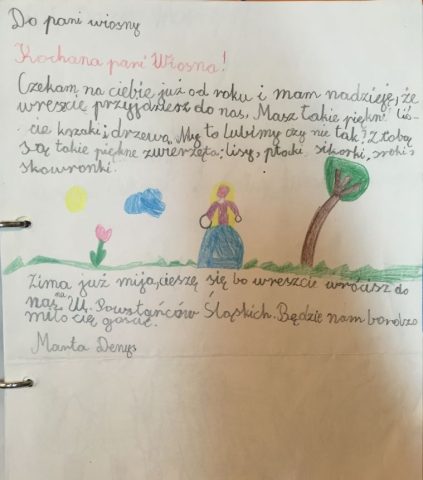 Do pani wiosny
Kochana pani Wiosna!
Czekam na ciebie już od roku i mam nadzieję, że
wreszcie przyjdziesz do nas. Masz takie piękne liś-
cie krzaki i drzewa. My to lubimy czy nie tak? Z tobą
są takie piękne zwierzęta; lisy, ptaki sikorki, sroki i
skowronki.
Zima już mija, cieszę się bo wreszcie wrócisz do
nas na Ul. Powstańców Śląskich. Będzie nam bardzo
miło cię gościć.
Marta Denys